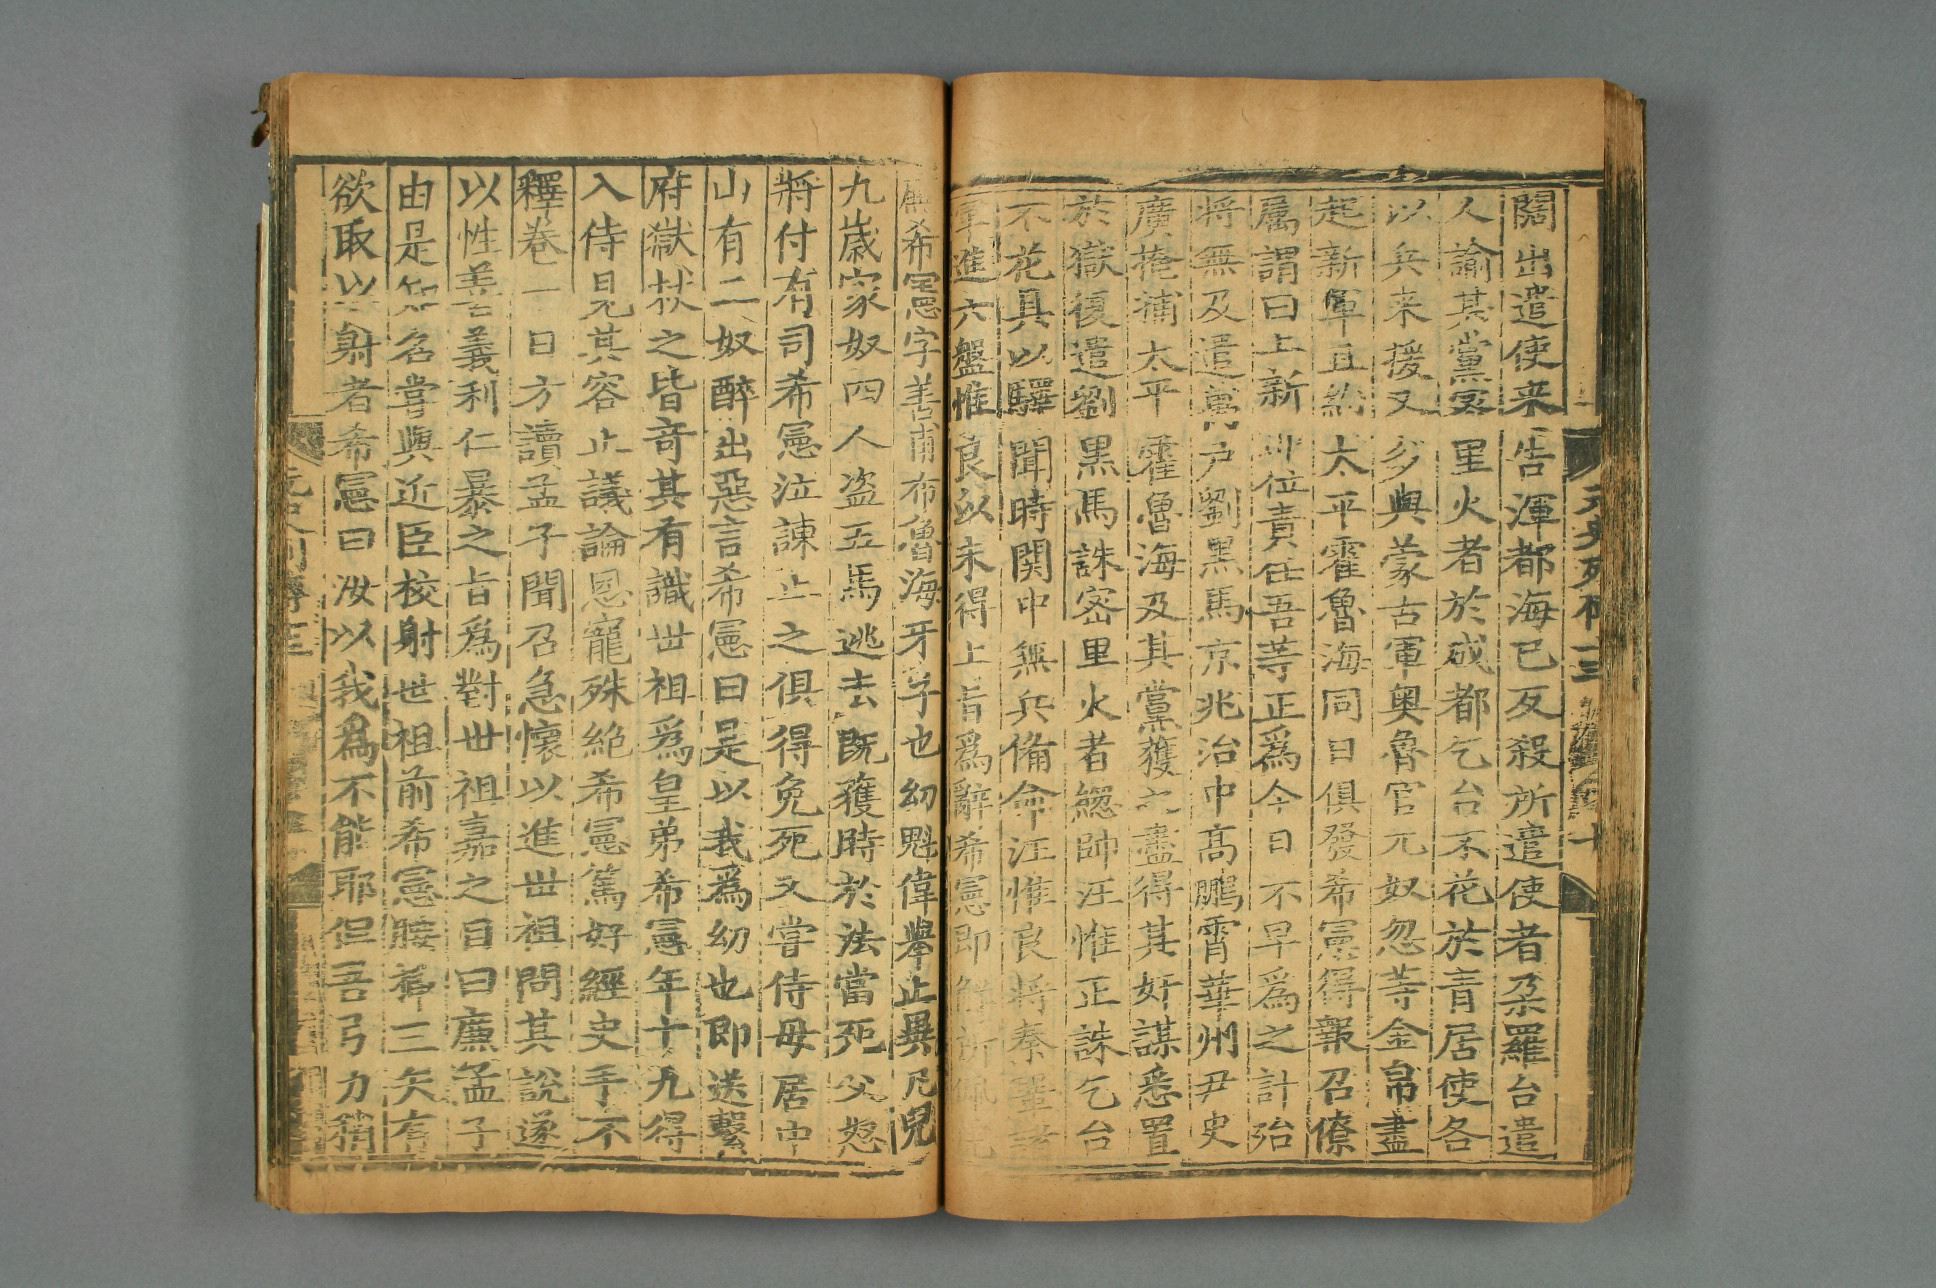 闊出遣使來告渾都海已反殺所遣使者朶羅台遣
人諭其黨宻里火者於成都乞台不花於青居使各
以兵来援又多與蒙古軍奥魯官兀奴忽等金帛盡
起新軍且約太平霍魯海同日俱發希憲得報召僚
属謂曰上新即位責任吾等正爲今日不早爲之計殆
将無及遣萬户劉黑馬京兆治中髙鵬霄華州尹史
廣掩捕太平霍魯海及其黨獲之盡得其奸謀悉置
於獄復遣劉黑馬誅宻里火者緫帥汪惟正誅乞台
不花具以驛聞時関中無兵備命汪惟良将秦鞏諸
軍進六盤惟良以未得上旨爲辭希憲即解所佩
元史列傳十三
十
希憲字善甫布魯海牙子也幼魁偉舉止異凡兒
九歲家奴四人盗五馬逃去旣獲時於法當死父怒
將付有司希憲泣諫止之俱得免死又嘗侍母居中
山有二奴醉出惡言希憲曰是以我爲幼也即送繫
府獄杖之皆竒其有識丗祖爲皇弟希憲年十九得
入侍見其容止議論恩寵殊絶希憲篤好經史手不
釋卷一日方讀孟子聞召急懷以進丗祖問其說遂
以性善義利仁暴之旨爲對丗祖嘉之目曰㢘孟子
由是知名嘗與近臣校射丗祖前希憲腰挿三矢有
欲取以射者希憲曰汝以我爲不能耶但吾弓力稍